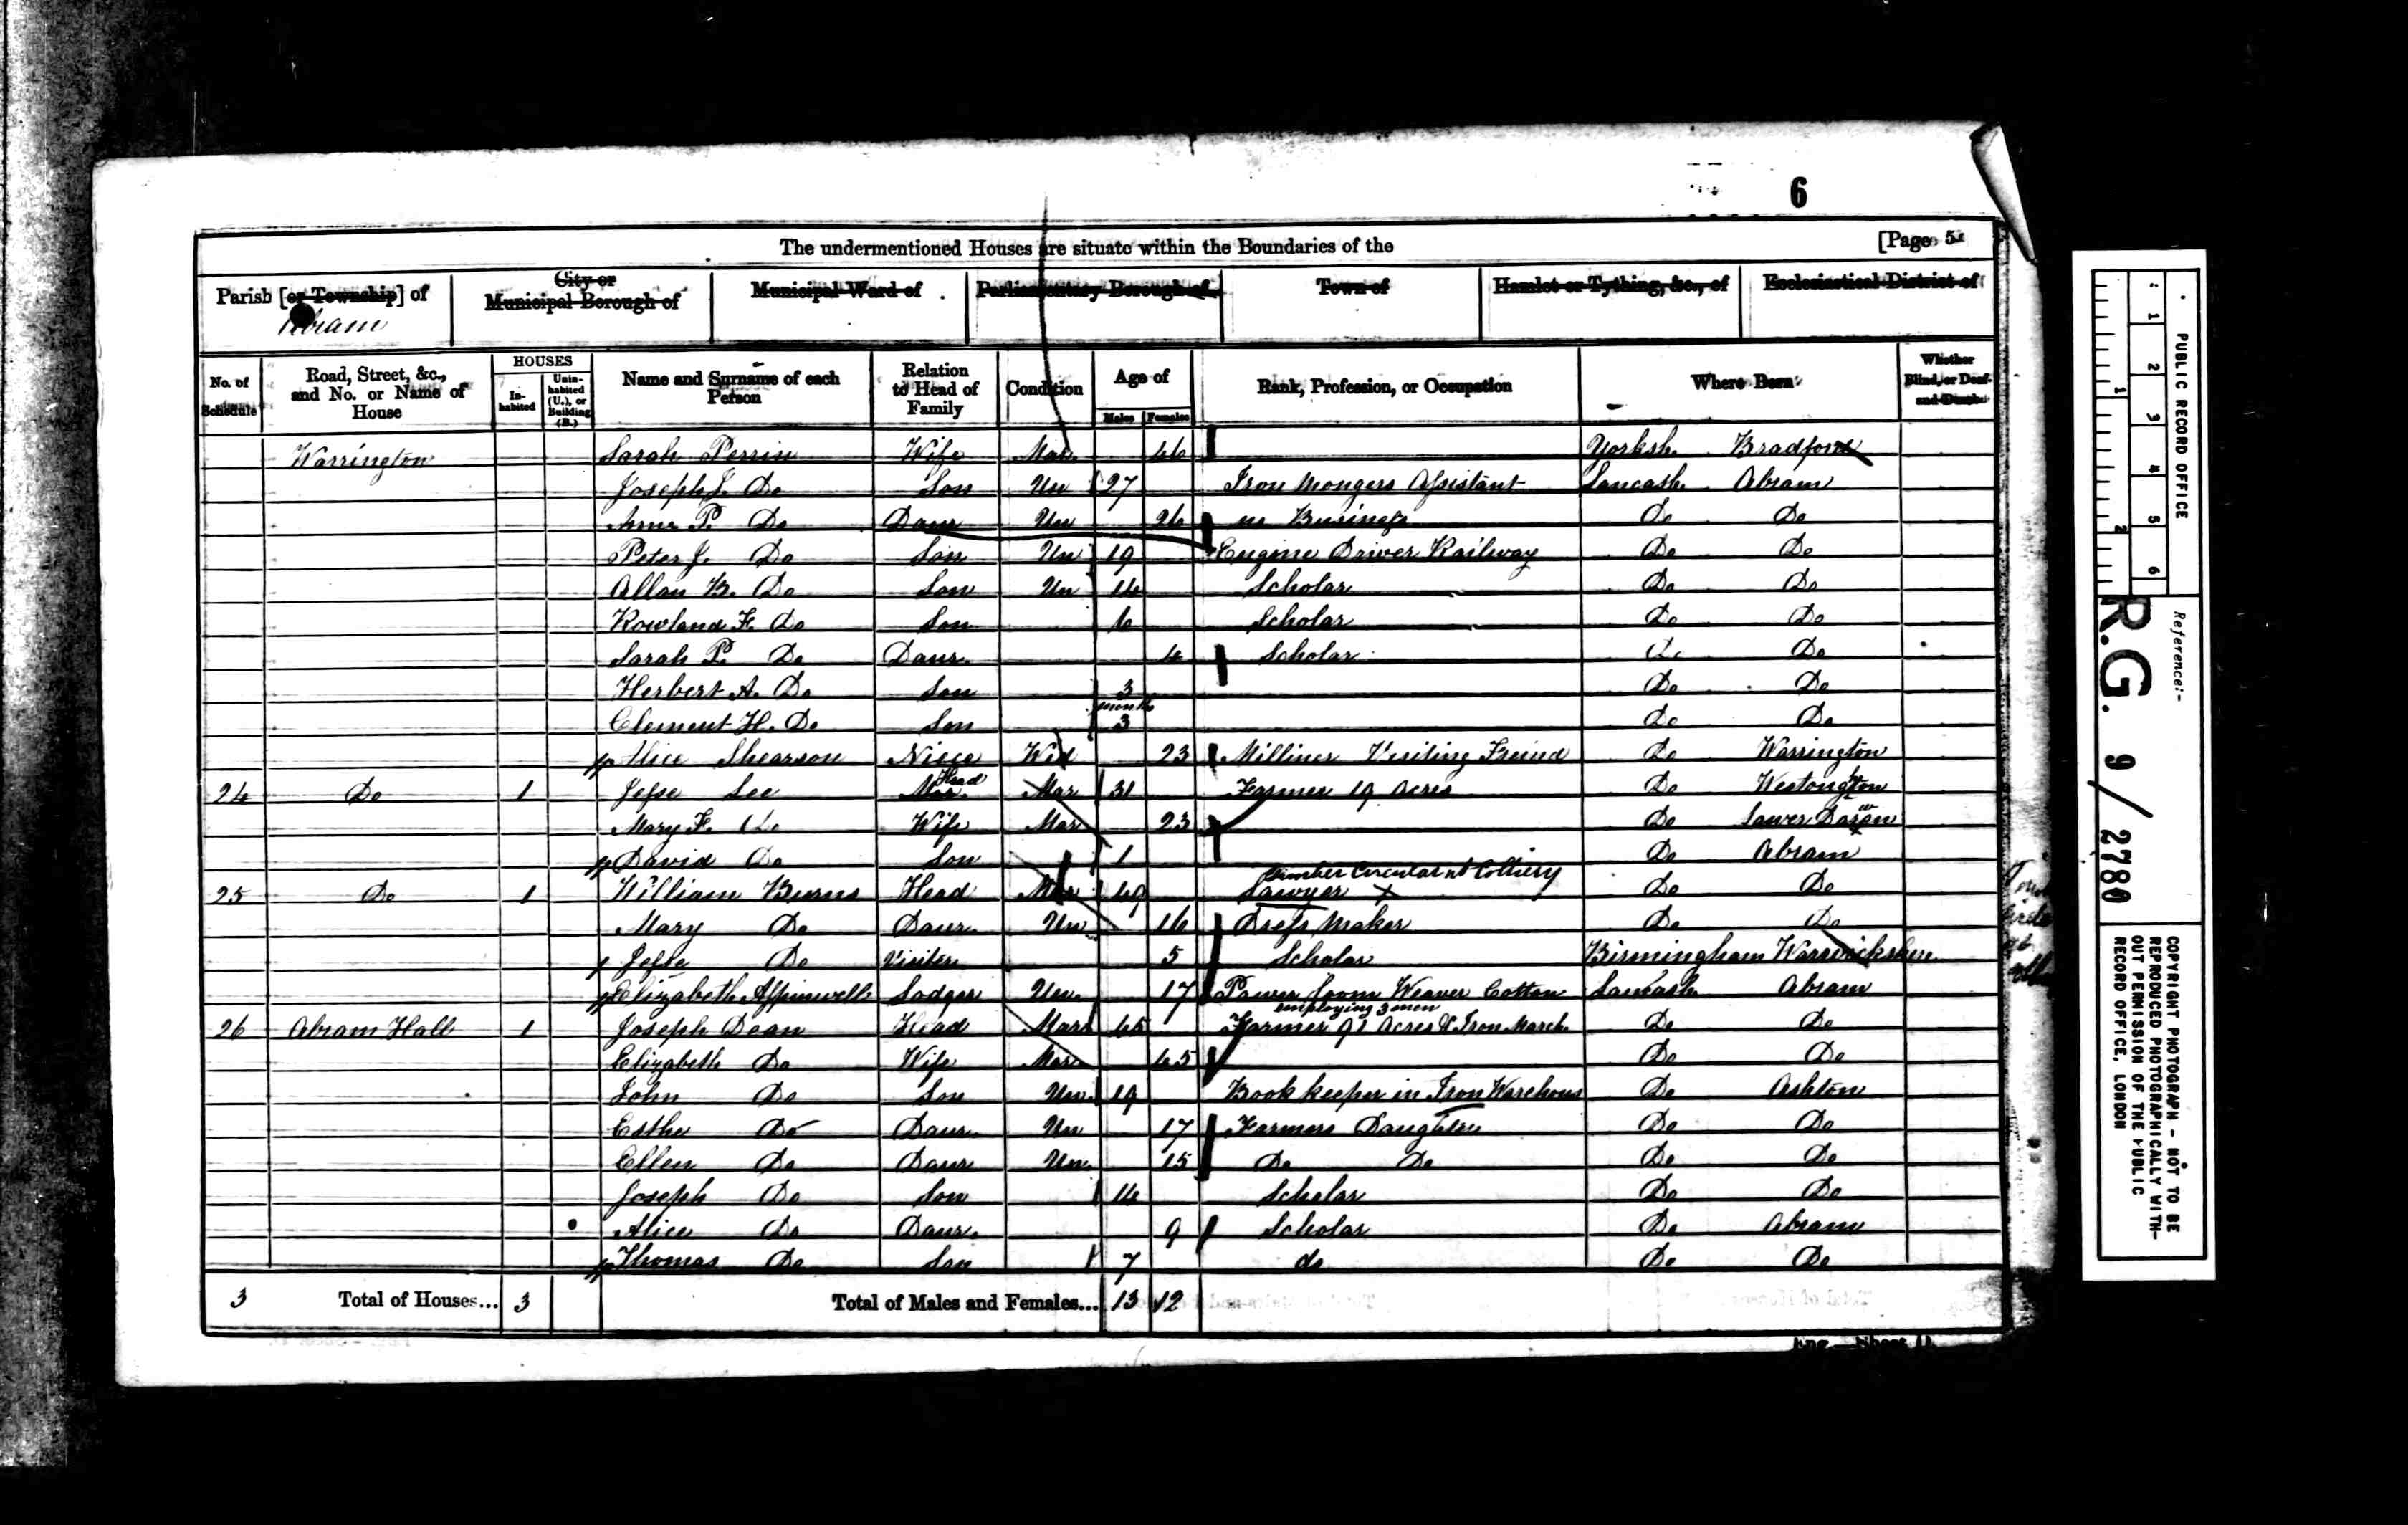 6
The undermentioned Houses are situate within the Boundaries of the [Page 5
Parish [or Township] of City or Municipal Borough of Municipal Ward of Parliamentary Borough of Town of Hamlet or Tything, &c., of Ecclesiastical District of
Abram
No. of Schedule Road, Street, &c., and No. or Name of House HOUSES In-habited Unin-habited (U.), or Building (B.) Name and Surname of each Person Relation to Head of Family Condition Age of Males Females Rank, Profession, or Occupation Where Born Whether Blind, or Deaf-and-Dumb
Warrington Sarah Perrin Wife Mar 46 Yorksh. Bradford
Joseph J. Do Son Un 27 Iron Mongers Assistant Lancash. Abram
Anne P. Do Daur Un 26 no Business Do Do
Peter J. Do Son Un 19 Engine Driver Railway Do Do
Allan B. Do Son Un 14 Scholar Do Do
Rowland F. Do Son 6 Scholar Do Do
Sarah P. Do Daur. 4 Scholar Do Do
Herbert A. Do Son 3 Do Do
Clement H. Do Son months 3 Do Do
Alice Shearson Niece Wid 23 Milliner Visiting Freind Do Warrington
24 Do 1 Jesse Lee Mar. Head Mar 31 Farmer 19 Acres Do
Mary F. Do Wife Mar 23 Do Lower
David Do Son 1 Do Abram
25 Do 1 William Burns Head Mar 49 Timber Circular at Colliery Sawyer X Do Do
Mary Do Daur. Un 16 Dress Maker Do Do
Jesse Do Visiter 5 Scholar Birmingham Warwickshire
Elizabeth Aspinwell Lodger Un. 17 Power Loom Weaver Cotton Lancash. Abram
26 Abram Hall 1 Joseph Dean Head Mar 45 employing 3 men Farmer 91 Acres & Iron March. Do Do
Elizabeth Do Wife Mar 45 Do Do
John Do Son Un. 19 Book keeper in Iron Warehous Do Ashton
Esther Do Daur. Un 17 Farmers Daughter Do Do
Ellen Do Daur Un. 15 Do Do Do Do
Joseph Do Son 14 Scholar Do Do
Alice Do Daur. 9 Scholar Do Abram
Thomas Do Son 7 do Do Do
3 Total of Houses... 3 Total of Males and Females... 13 12
PUBLIC RECORD OFFICE
1 2 3 4 5 6
1 2
Reference:-
R.G. 9/2780
COPYRIGHT PHOTOGRAPH - NOT TO BE
REPRODUCED PHOTOGRAPHICALLY WITH-
OUT PERMISSION OF THE PUBLIC
RECORD OFFICE, LONDON